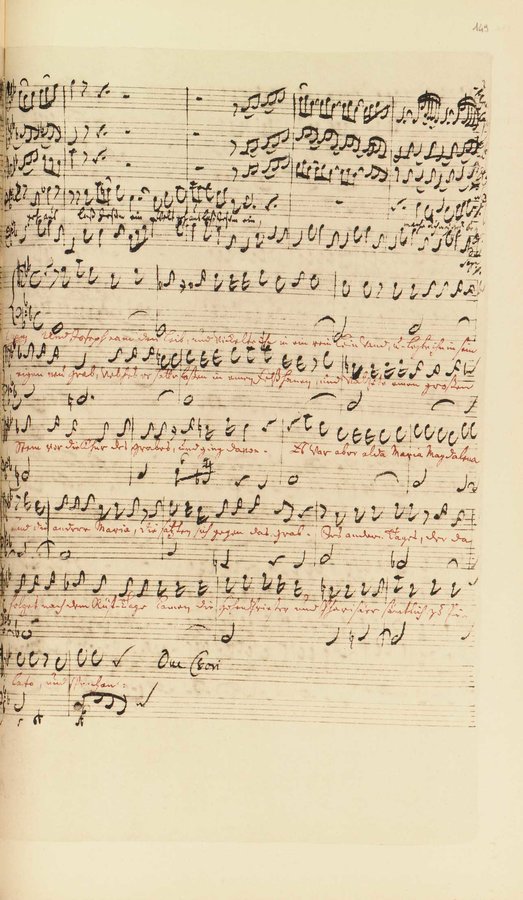 149
geh aus, laß Jesum ein
Und Joseph nam den Leib, und wickelte ihn in ein rein Leinwand, u. legte ihn in sein
eigen neu Grab, welches er hatte laßen in einen Felß hauen, und waltzete einen großen
Stein vor die Thür des Grabes, und ging davon. Es war aber alda Maria Magdalena
und die andere Maria, die satzten sich gegen das Grab. Des andern Tages, der da
folget nach dem Rüst-Tage kamen die Hohenpriester und Pharisäer sämtlich zu Pi-
Due Chori
lato, und sprachen: